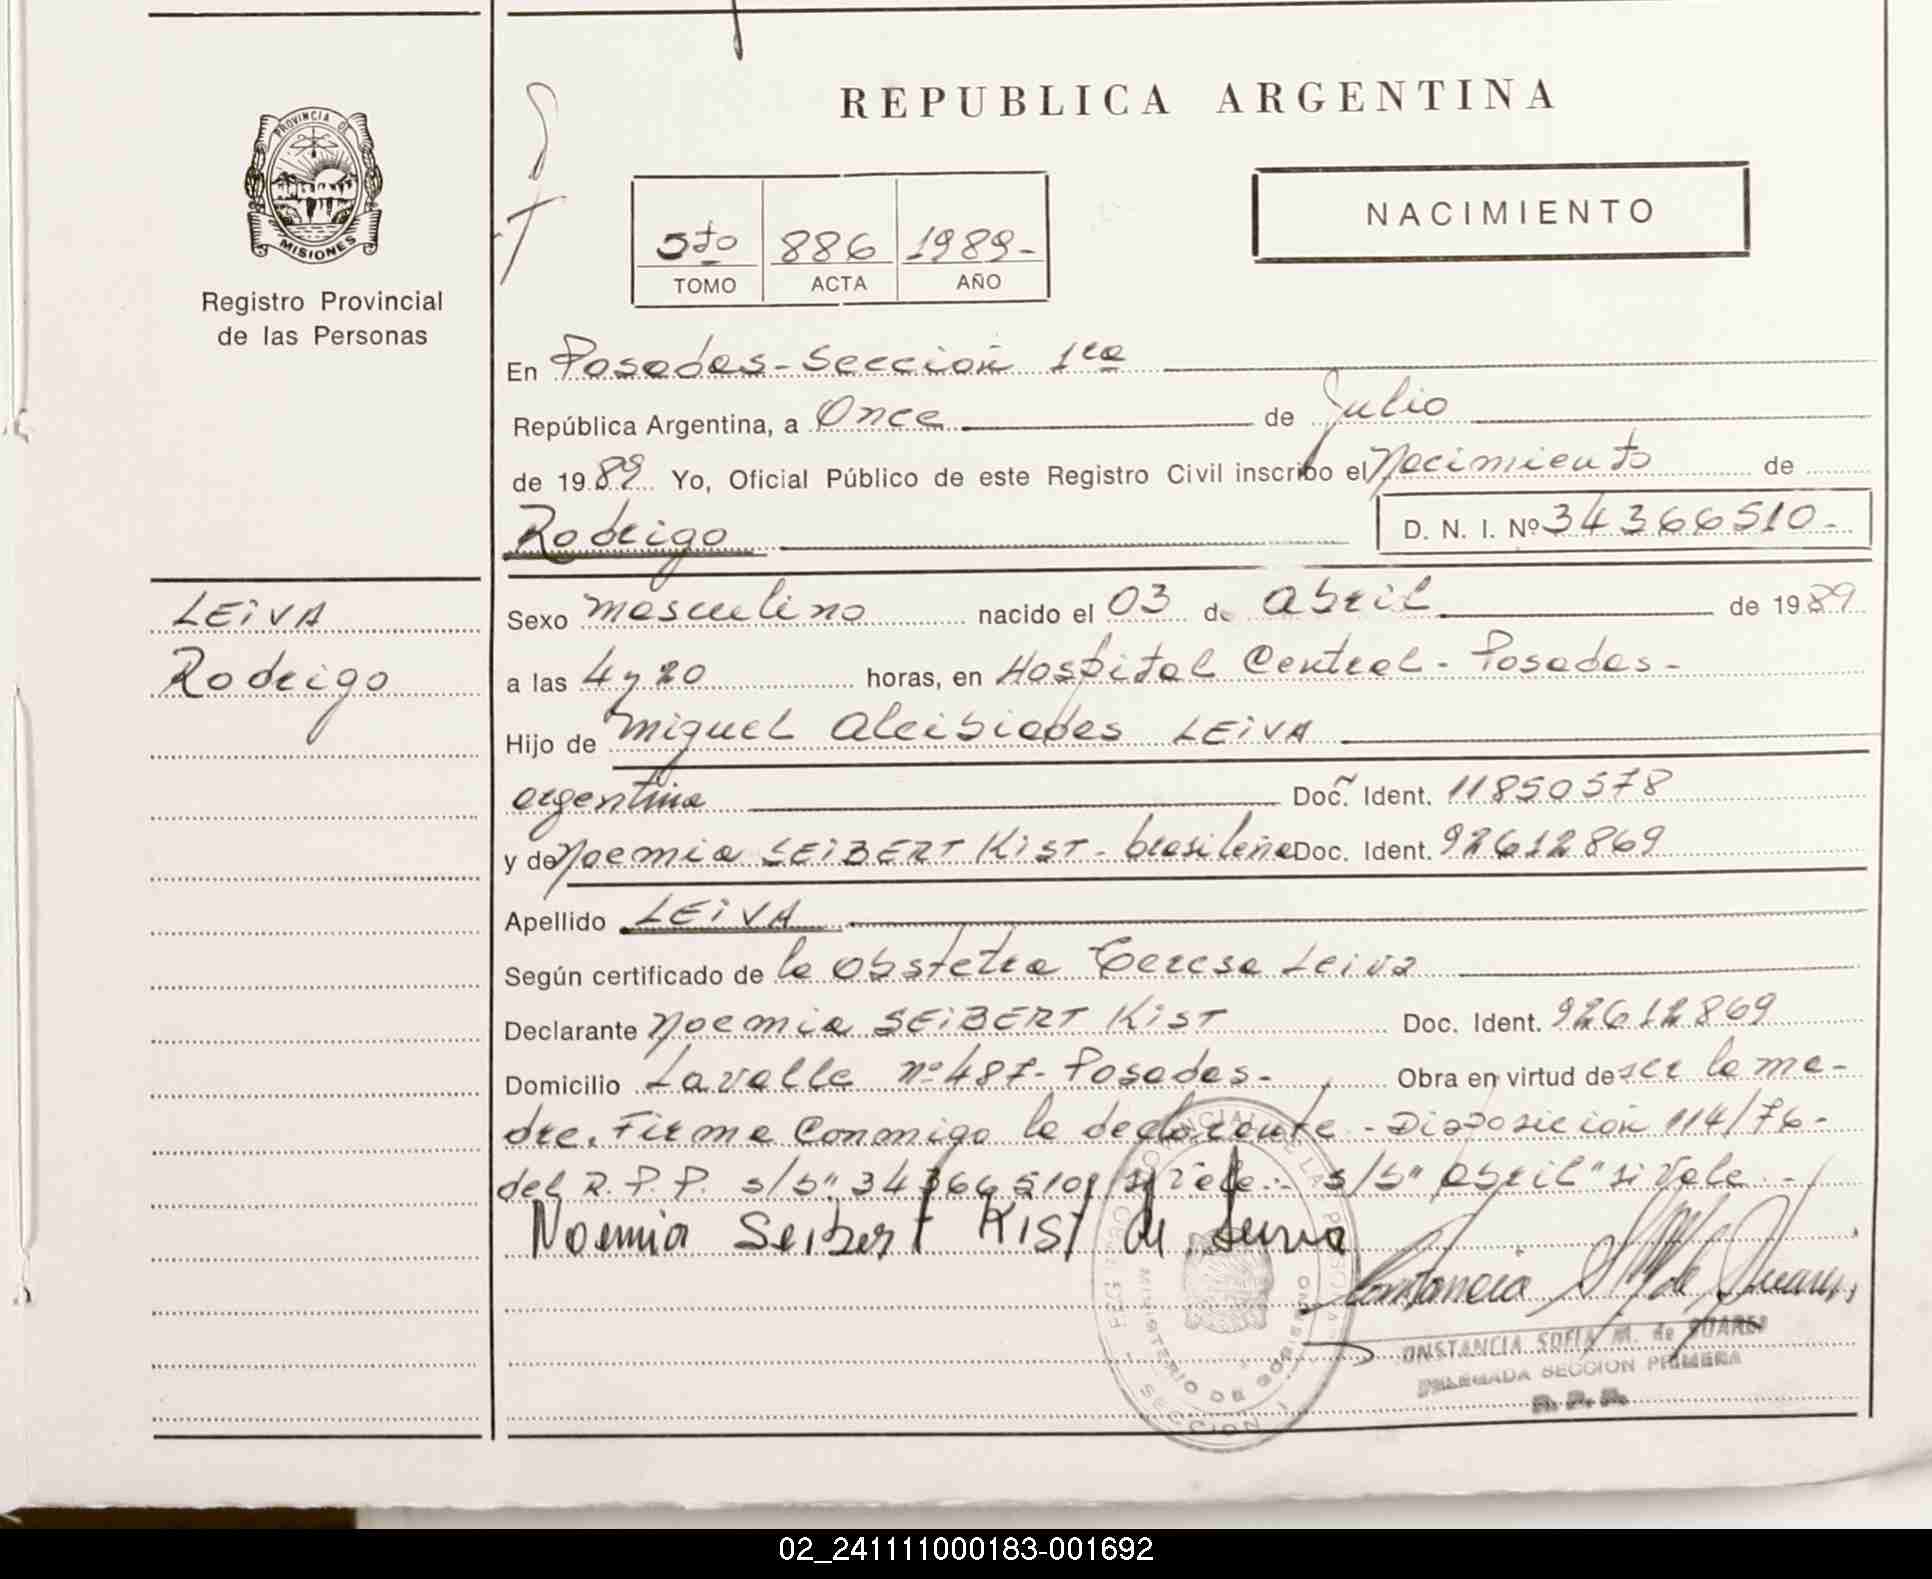 PROVINCIA DE
MISIONES
Registro Provincial
de las Personas
LEIVA
Rodrigo
REPUBLICA ARGENTINA
5to 886 1989-
TOMO ACTA AÑO
NACIMIENTO
En Posadas-Sección 1ra
República Argentina, a Once de Julio
de 1989 Yo, Oficial Público de este Registro Civil inscribo el Nacimiento de
Rodrigo D. N. I. Nº 34366510-
Sexo masculino nacido el 03 de abril de 1989
a las 4 y 20 horas, en Hospital Central - Posadas-
Hijo de Miguel Alcibiades LEIVA
argentina Doc. Ident. 11850578
y de Noemia SEIBERT KIST - brasileña Doc. Ident. 92612869
Apellido LEIVA
Según certificado de la obstetra Teresa Leiva
Declarante Noemia SEIBERT KIST Doc. Ident. 92612869
Domicilio Lavalle nº 487- Posadas- Obra en virtud de ser la ma-
dre. Firma conmigo la declarante - Disposición 114/76-
del R.P.P. s/b "34366510" si vale.- s/b "abril" si vale.-
Noemia Seibert Kist de Leiva
Constancia
ONSTANCIA SOFIA M. de SUAREZ
DELEGADA SECCION PRIMERA
R. P. P.
MINISTERIO DE GOBIERNO
SECCION 1
02_241111000183-001692